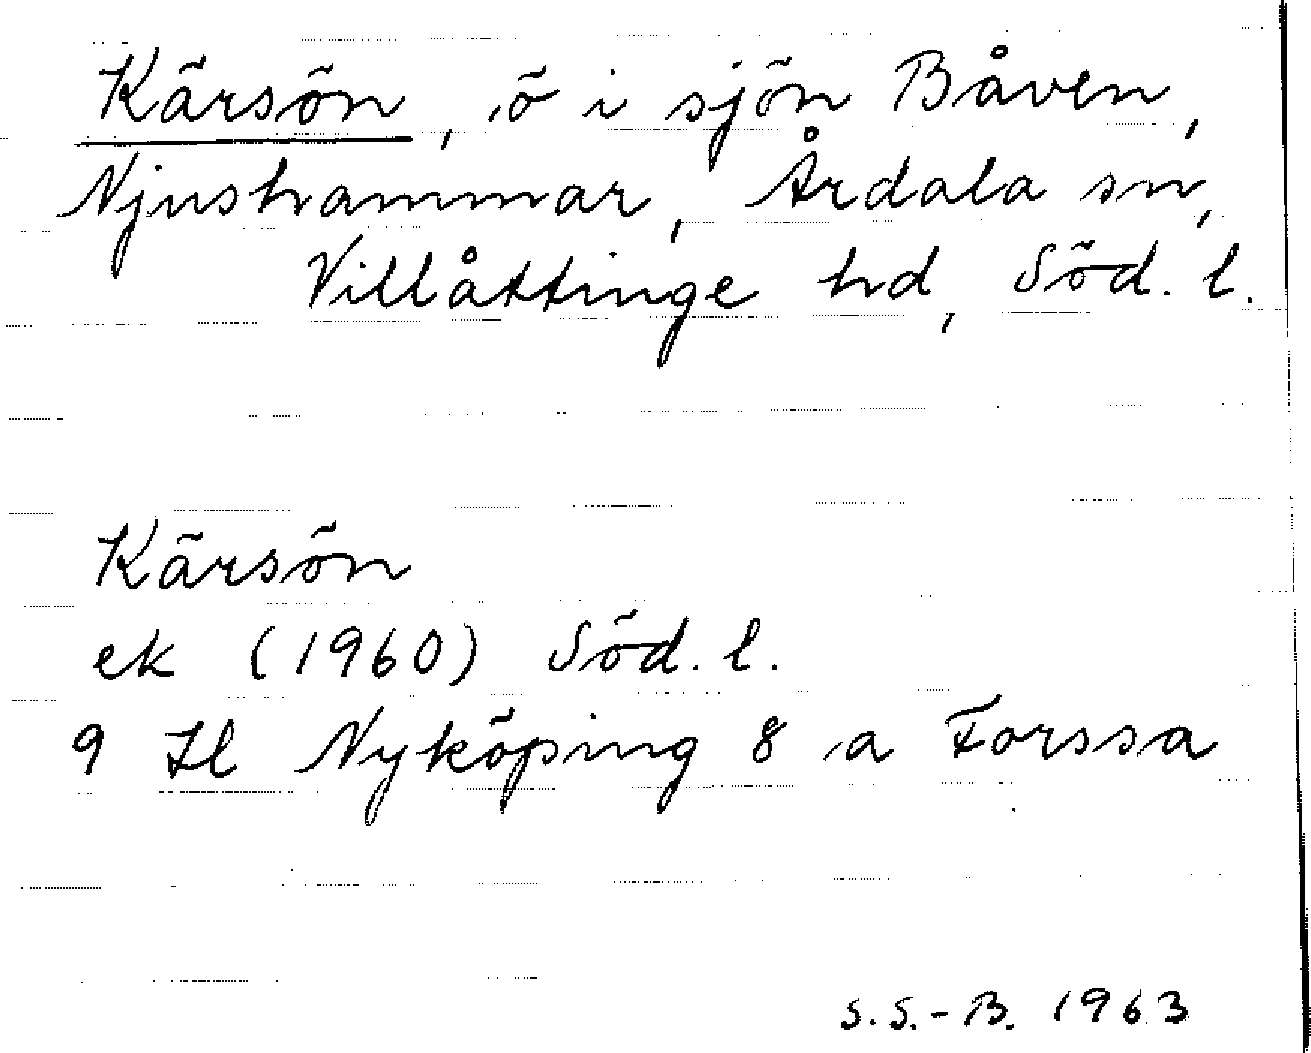 Kärsön, ö i sjön Båven,
Njushammar, Årdala sn,
Villåttinge hd, Söd. l.
Kärsön
ek (1960) Söd. l.
9 Il Nyköping 8 a Forssa
S.S.-B. 1963